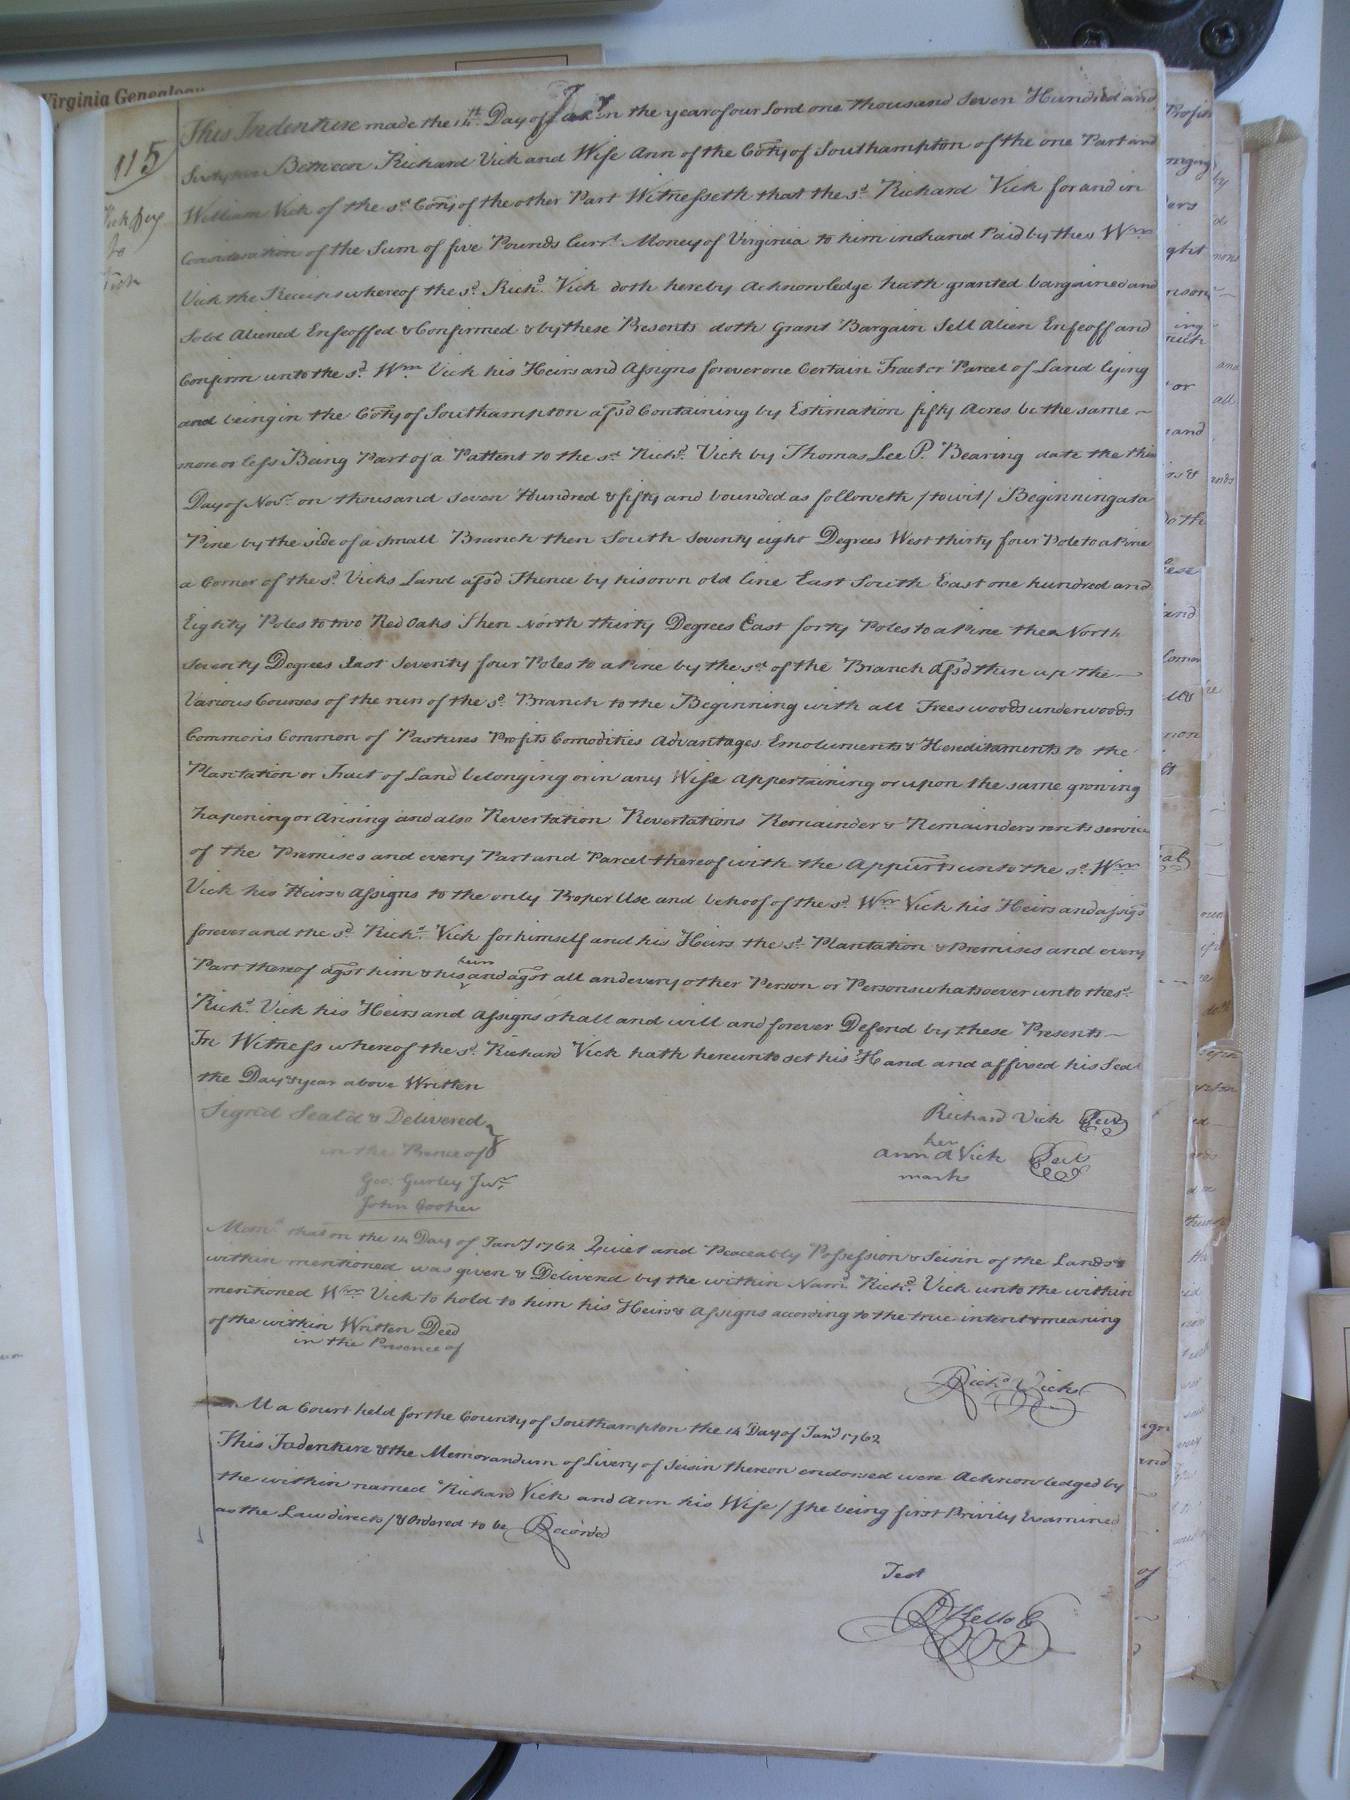 Virginia Genealogy
115
Vick Dec
to
Vick
This Indenture made the 14th Day of Jany in the year of our Lord one thousand Seven Hundred and
Sixty two Between Richard Vick and Wife Ann of the Coty of Southampton of the one Part and
William Vick of the sd Coty of the other Part Witnesseth that the sd Richard Vick for and in
Consideration of the Sum of five Pounds Currt Money of Virginia to him in hand Paid by the s Wm
Vick the Receipt whereof the sd Richd Vick doth hereby Acknowledge hath granted bargained and
Sold Aliened Enfeoffed & Confirmed & by these Presents doth Grant Bargain Sell Alien Enfeoff and
Confirm unto the sd Wm Vick his Heirs and Assigns forever one Certain Tract or Parcel of Land lying
and being in the Coty of Southampton afsd Containing by Estimation fifty Acres be the same
more or less Being Part of a Pattent to the sd Richd Vick by Thomas Lee P. Bearing date the
Day of Novr on thousand seven Hundred & fifty and bounded as followeth /towit/ Beginning at a
Pine by the side of a small Branch then South Seventy eight Degrees West thirty four Pole to a Pine
a Corner of the sd Vicks Land afsd Thence by his own old line East South East one hundred and
Eighty Poles to two Red Oaks Then North thirty Degrees East forty Poles to a Pine then North
seventy Degrees East Seventy four Poles to a Pine by the sd of the Branch afsd then up the
Various Courses of the run of the sd Branch to the Beginning with all Trees woods underwoods
Commons Common of Pastures Profits Comodities Advantages Emoluments & Hereditaments to the
Plantation or Tract of Land belonging or in any Wise Appertaining or upon the same growing
hapening or Arising and also Revertation Revertations Remainder & Remainders rents servic
of the Premises and every Part and Parcel thereof with the Appurts unto the sd Wm
Vick his Heirs & Assigns to the only Proper Use and behoof of the sd Wm Vick his Heirs and assigs
forever and the sd Richd Vick for himself and his Heirs the sd Plantation & Premises and every
Part thereof agst him & his heirs and agst all and every other Person or Persons whatsoever unto the sd
Richd Vick his Heirs and Assigns shall and will and forever Defend by these Presents
In Witness whereof the sd Richard Vick hath hereunto set his Hand and affixed his Seal
the Day & year above Written
Signd Seal'd & Delivered
in the Prence of
Geo. Gurley Junr
John Cooper
Richard Vick Seal
her
Ann A Vick Seal
mark
Memd that on the 14 Day of Jany 1762 Quiet and Peaceably Possession & Seisin of the Lands &
within mentioned was given & Delivered by the within Namd Richd Vick unto the within
mentioned Wm Vick to hold to him his Heirs & Assigns according to the true intent & meaning
of the within Written Deed
in the Presence of
Richd Vick
At a Court held for the County of Southampton the 14 Day of Jany 1762
This Indenture & the Memorandum of Livery of Seisin thereon endorsed were Acknowledged by
the within named Richard Vick and Ann his Wife /She being first Privily Examined
as the Law directs/ & Ordered to be Recorded
Test
Rd Kello C